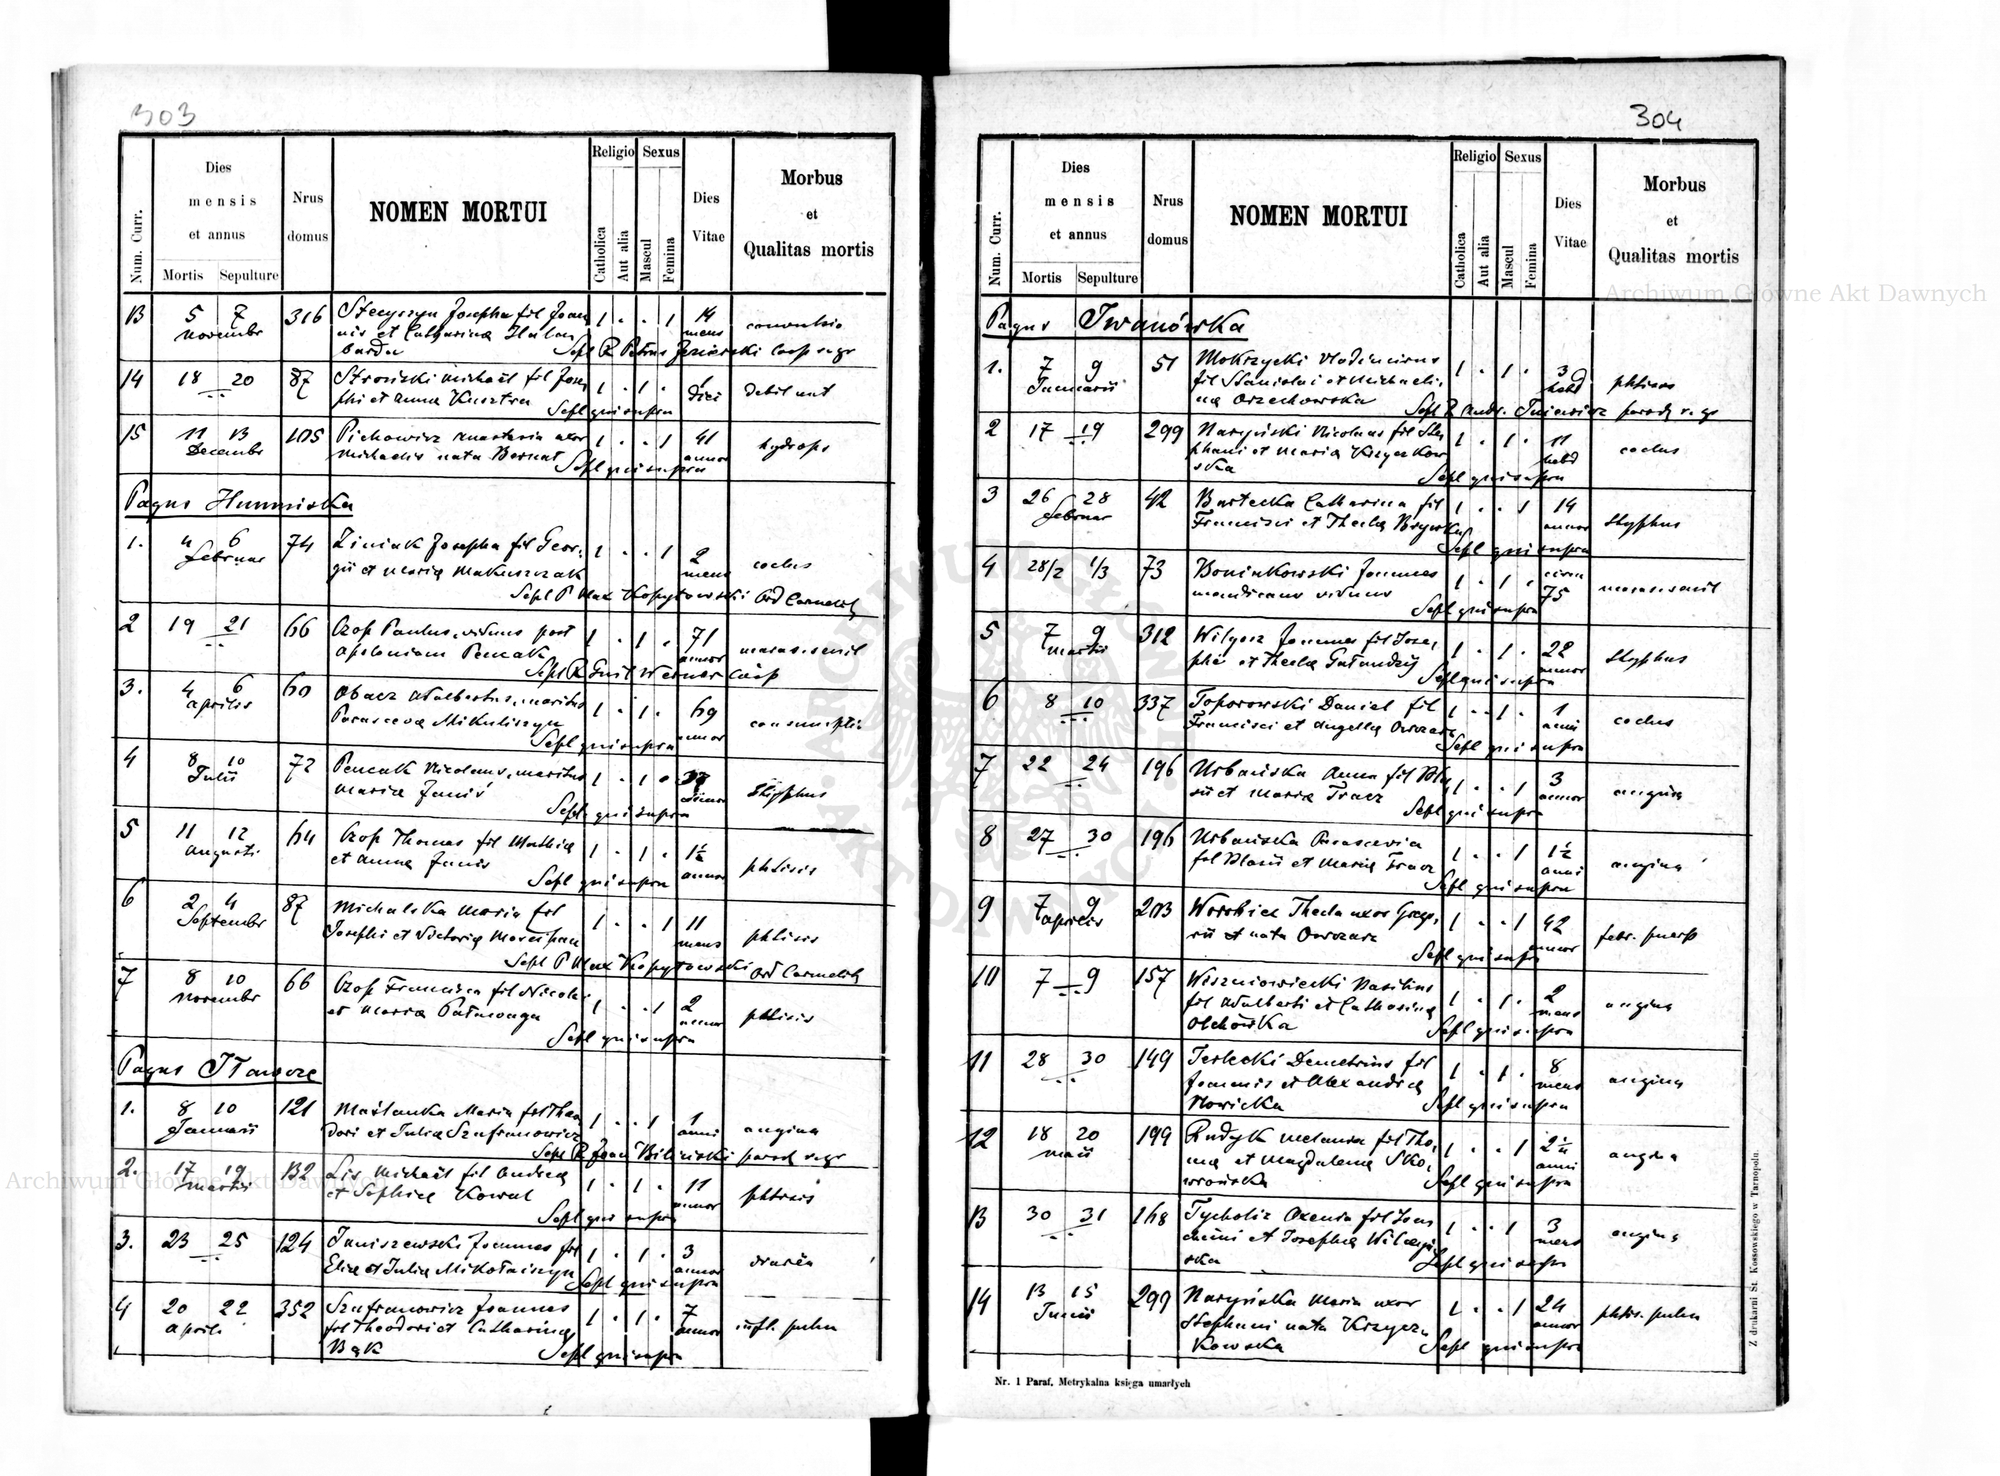 303
Num. Curr.
Dies
mensis
et annus
Mortis Sepulture
Nrus
domus
NOMEN MORTUI
Religio
Catholica
Aut alia
Sexus
Mascul
Femina
Dies
Vitae
Morbus
et
Qualitas mortis
13 5 7 316 Josepha fil Joan 1 · · 1 14
novembr nis et Catharina mens convulsio
Sepl R Petrus Jezierski Coop
14 18 20 87 Stroński Michaël fil Jose 1 · 1 · 1
phi et Anna Kusztra diei debilitat
Sepl qui supra
15 11 13 105 Pichowicz Anastasia uxor 1 · · 1 41
Decembr Michaelis nata Bernat annor hydrops
Sepl qui supra
Pagus Humniska
1. 4 6 74 Ziniak Josepha fil Geor 1 · · 1 2
Februar gii et Maria Makuszczak mens coclus
Sepl P Max Kopytowski Ord Carmelit
2 19 21 66 Czop Paulus, viduus post 1 · 1 · 71
Apoloniam Pencak annor maras. senil
Sepl R Guil Werner Coop
3. 4 6 60 Obacz Adalbertus, maritus 1 · 1 · 69
Aprilis Parasceva Mikuliszyn annor consumpti
Sepl qui supra
4 8 10 72 Pencak Nicolaus, maritus 1 · 1 ·
Julii Maria Janiś annor Styphus
Sepl. qui supra
5 11 12 64 Czop Thomas fil Mathia 1 · 1 · 1½
Augusti et Anna Janis annor phtisis
Sepl qui supra
6 2 4 87 Michalska Maria fil 1 · · 1 11
Septembr Josephi et Victoria mens phtisis
Sepl P Max Kopytowski Ord Carmelit
7 8 10 66 Czop Francisca fil Nicolai 1 · · 1 2
Novembr et Maria annor phtisis
Sepl qui supra
Pagus Iławcze
1. 8 10 121 Maślanka Maria fil Theo 1 · · 1 1
Januarii dori et Julia Szafranowicz anni angina
Sepl R Joan Biliński paroch
2. 17 19 132 Lis Michaël fil Andrea 1 · 1 · 11
Martii et Sophia Kowal annor phtisis
Sepl qui supra
3. 23 25 124 Janiszewski Joannes fil 1 · 1 · 3
Elia et Julia Mikołaiszyn annor
Sepl qui supra
4 20 22 352 Szafranowicz Joannes 1 · 1 · 7
April. fil Theodori et Catharina annor infl. pulm
Bąk Sepl qui supra
304
Num. Curr.
Dies
mensis
et annus
Mortis Sepulture
Nrus
domus
NOMEN MORTUI
Religio
Catholica
Aut alia
Sexus
Mascul
Femina
Dies
Vitae
Morbus
et
Qualitas mortis
Pagus Iwanówka
1. 7 9 51 Mokrzycki Vladimirus 1 · 1 · 3
Januarii fil Stanislai et Michaeli hebd phtisis
na Orzechowska
Sepl R Andr.
2 17 19 299 Naryński Nicolaus fil Ste 1 · 1 · 11
phani et Maria Krzyczkow hebd coclus
ska Sepl qui supra
3 26 28 42 Bartecka Catharina fil 1 · · 1 14
Februar Francisci et Thecla annor Styphus
Sepl qui supra
4 28/2 1/3 73 Boniakowski Joannes 1 · 1 · circa
mendicans viduus 75 maras. senil
Sepl qui supra
5 7 9 312 Wilgosz Joannes fil Jose 1 · 1 · 22
Martii phi et Thecla annor Styphus
Sepl qui supra
6 8 10 337 Toporowski Daniel fil 1 · 1 · 1
Francisci et Angella Owczarz anni coclus
Sepl qui supra
7 22 24 196 Urbańska Anna fil Bla 1 · · 1 3
sii et Maria Tracz annor angina
Sepl qui supra
8 27 30 196 Urbańska Parascevia 1 · · 1 1½
fil Blasii et Maria Tracz anni angina
Sepl qui supra
9 7 9 203 Thecla uxor Grego 1 · · 1 42
Aprilis rii et nata Owczarz annor febr. puerp
Sepl qui supra
10 7 9 157 Wiszniowiecki Basilius 1 · 1 · 2
fil Adalberti et Catharina mens angina
Olchówka Sepl qui supra
11 28 30 149 Terlecki Demetrius fil 1 · 1 · 8
Joannis et Alexandra mens angina
Nowicka Sepl qui supra
12 18 20 199 Rudyk Melania fil Tho 1 · · 1 2½
Maii ma et Magdalena Sko anni angina
wrońska Sepl qui supra
13 30 31 168 Tycholiz Oxenia fil Joa 1 · · 1 3
chimi et Josepha mens angina
ska Sepl qui supra
14 13 15 299 Naryńska Maria uxor 1 · · 1 24
Junii Stephani nata Krzycz annor phtis. pulm
kowska Sepl qui supra
Nr. 1 Paraf. Metrykalna księga umarłych
Z drukarni St. Kossowskiego w Tarnopolu.
Archiwum Główne Akt Dawnych
Archiwum Główne Akt Dawnych
ARCHIWUM GŁÓWNE AKT DAWNYCH